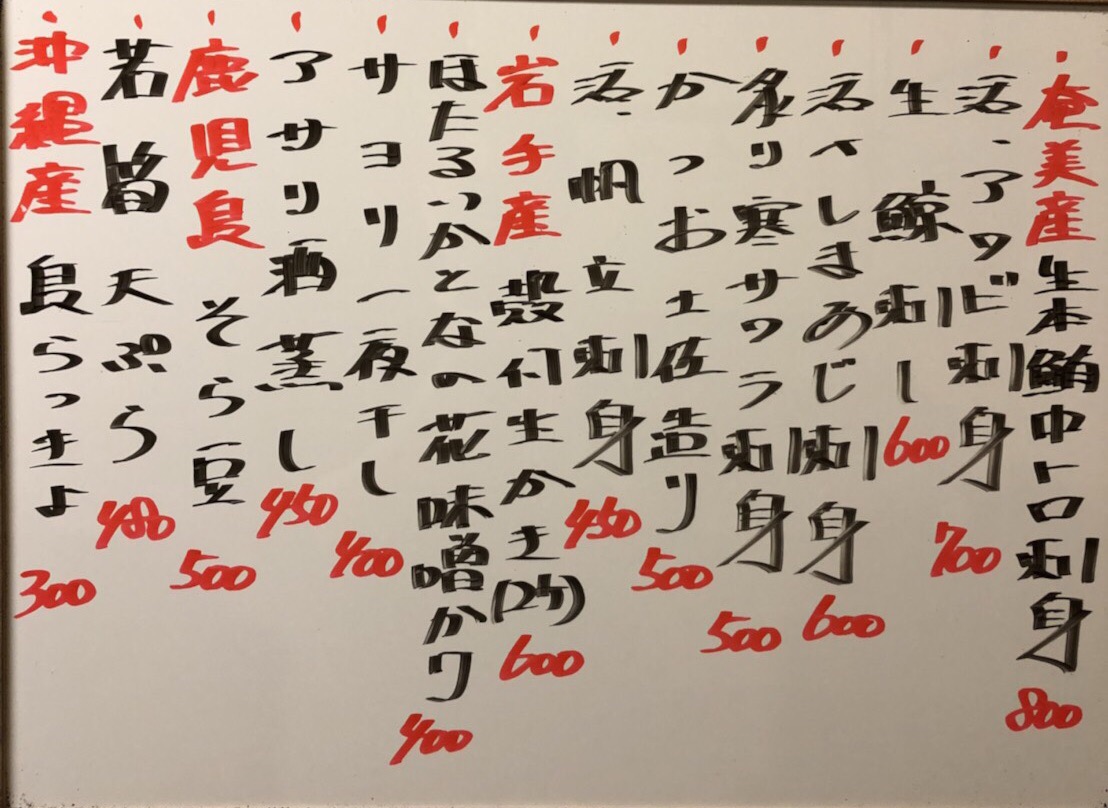 奄美産生本鮪中トロ刺身 800
活、アワビ刺身 700
生 鯨刺し 600
活〆しまあじ刺身 600
炙り寒サワラ刺身 500
かつお土佐造り 500
活、帆立刺身 450
岩手産 殻付生かき(2ケ) 600
ほたるいかとなの花味噌かけ 400
サヨリ一夜干し 400
アサリ酒蒸し 450
鹿児島 そら豆 500
若 天ぷら 480
沖縄産 島らっきょ 300